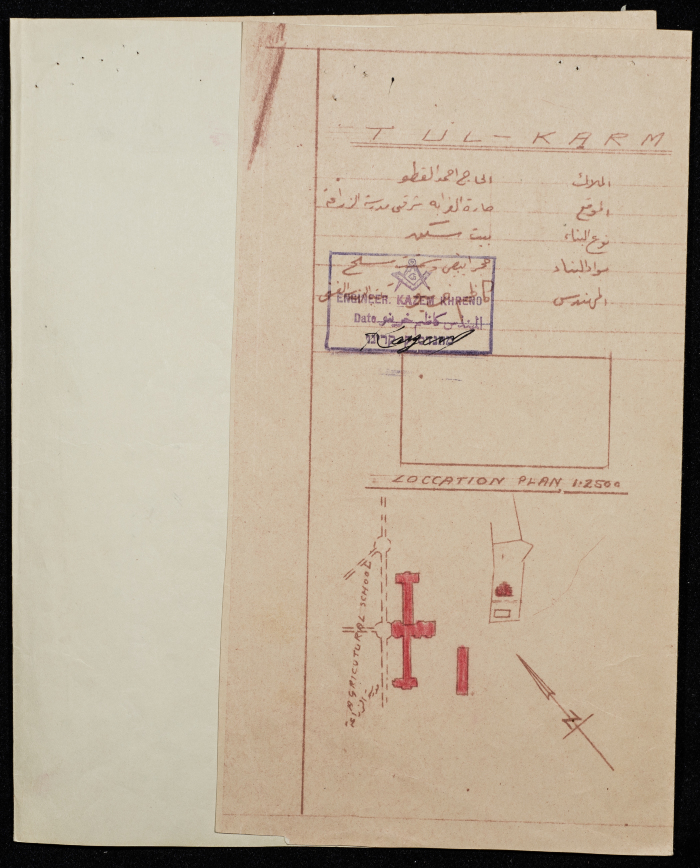 TUL-KARM
الملاك الحاج احمد القطو
الموقع حارة الغرابه شرقي مدرسة الزراعة
نوع البناء بيت سكن
مواد البناء حجر ابيض و مسلح
المهندس كاظم
G
ENGINEER. KAZEM KHRENO
المهندس كاظم خرينو
Date
LOCCATION PLAN 1:2500
AGRICUTURAL SCHOOL
N